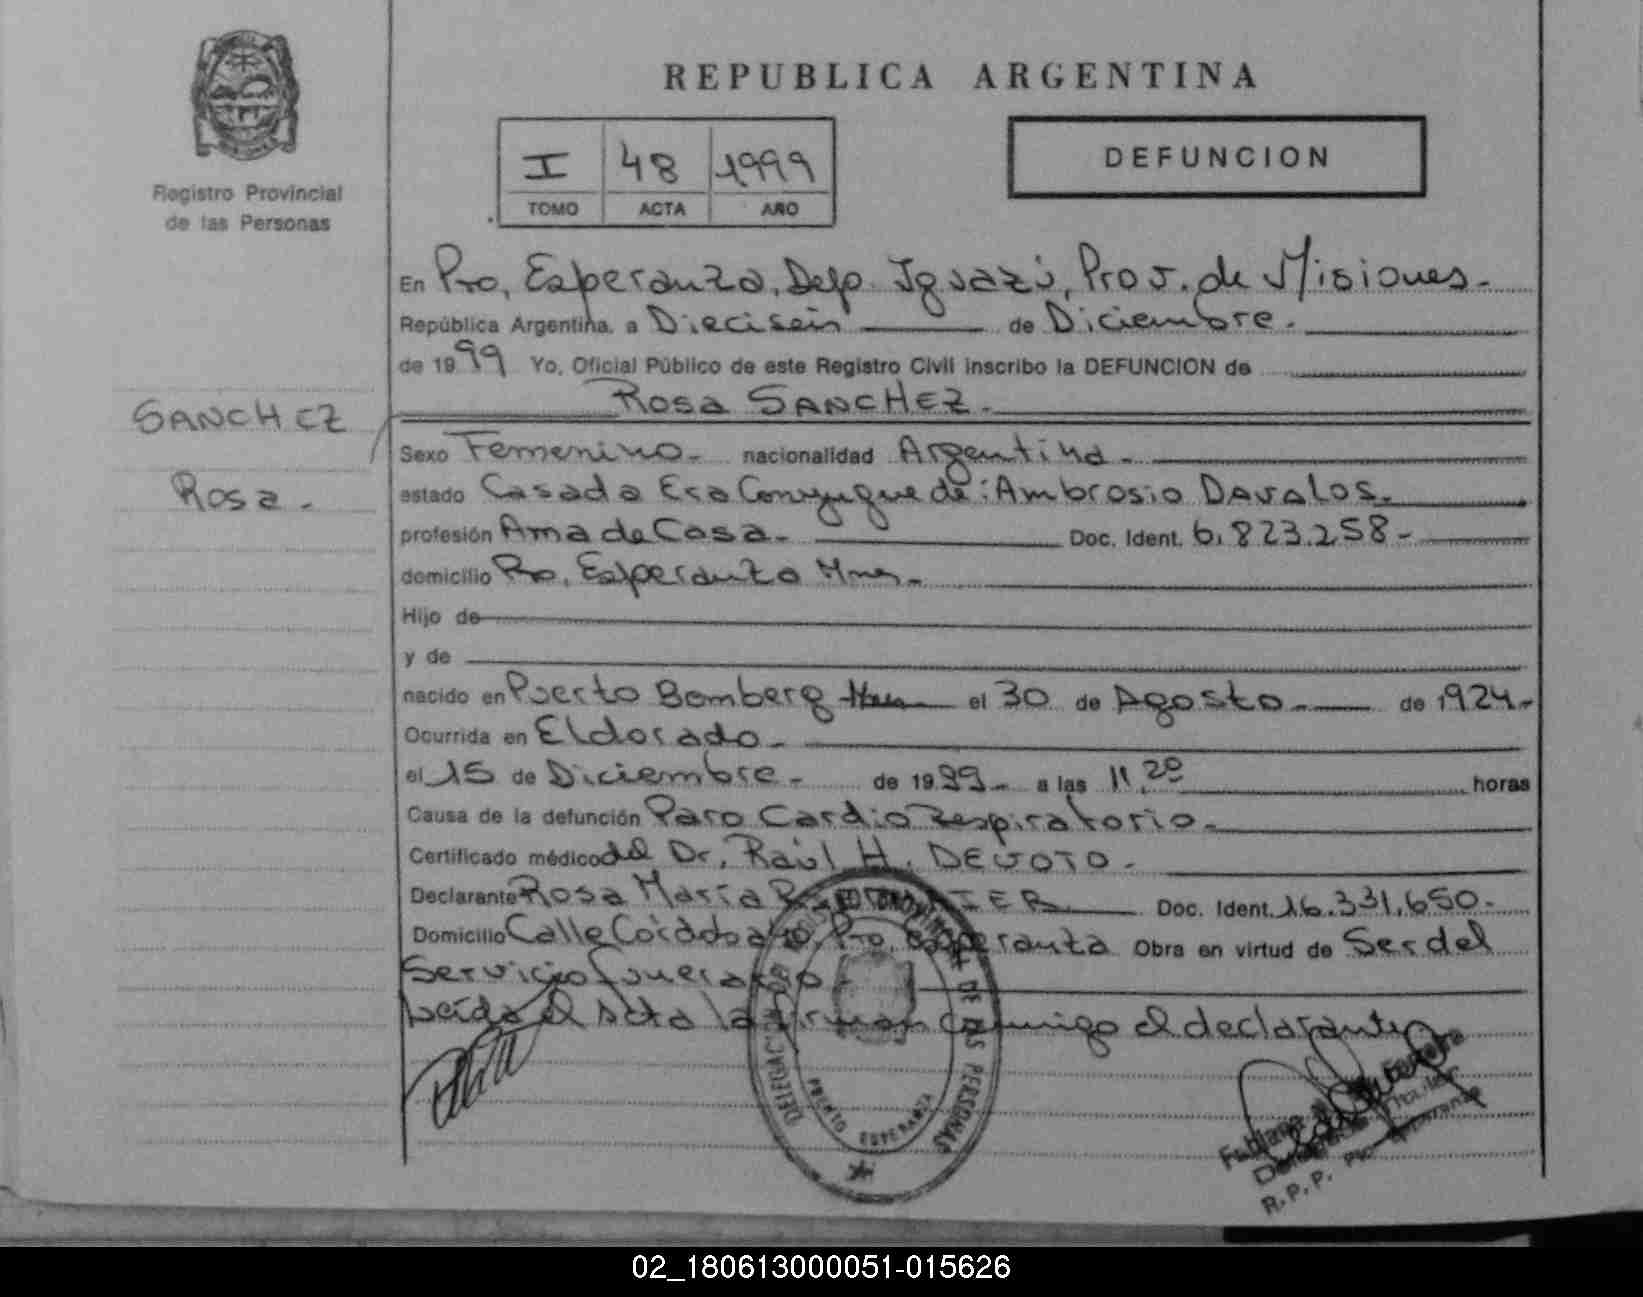 REPUBLICA ARGENTINA
Registro Provincial
de las Personas
I 48 1999
TOMO ACTA AÑO
DEFUNCION
SANCHEZ
Rosa.
En Pto. Esperanza, Dep. Iguazú, Prov. de Misiones.
República Argentina, a Dieciseis de Diciembre.
de 1999 Yo, Oficial Público de este Registro Civil inscribo la DEFUNCION de
Rosa SANCHEZ.
Sexo Femenino. nacionalidad Argentina.
estado Casada Era Conyugue de: Ambrosio DAVALOS.
profesión Ama de Casa. Doc. Ident. 6.823.258-
domicilio Pto. Esperanza Mnes.
Hijo de
y de
nacido en Puerto Bomberg Mnes el 30 de Agosto. de 1924.
Ocurrida en Eldorado.
el 15 de Diciembre. de 1999. a las 11,20 horas
Causa de la defunción Paro Cardio Respiratorio.
Certificado médico del Dr. Raúl H. DEVOTO.
Declarante Rosa María Doc. Ident. 16.331.650.
Domicilio Calle Córdoba Pto. Esperanza Obra en virtud de Ser del
Servicio funerario
Leída el Acta la firman conmigo el declarante
DELEGACION REGISTRO PROVINCIAL DE LAS PERSONAS
PUERTO ESPERANZA
Ferreira
Titular
R.P.P. Pto. Esperanza
02_180613000051-015626